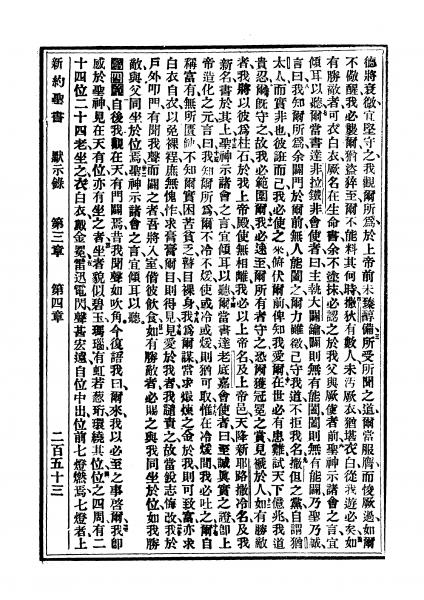 德將衰徵宜堅守之我觀爾所爲於上帝前未臻醇備所受所聞之道爾當服膺而悛厥過如爾
不儆醒我必襲爾猶盜猝至爾不能料其何時撒狄有數人未污厥衣猶堪衣白從我遊必矣如
有勝敵者可衣白衣厥名在生命書余不塗抹必認之於我父與厥使者前聖神示諸會之言宜
傾耳以聽爾當書達非拉鐵非會使者曰主執大闢鑰闢則無有能闔闔則無有能闢乃聖乃誠
言曰我知爾所爲余闢門於爾前無人能闔之爾力雖微已守我道不拒我名撒但之黨自謂猶
太人而實非也彼誑而已我必使之來俯伏爾前俾知我愛爾在世必有患難試天下億兆我道
貴忍爾旣守之故我必範圍爾我必速至爾所有者守之恐爾獲冠冕之賞見褫於人如有勝敵
者我將以彼爲柱石於我上帝殿使無相離我必以上帝名及上帝邑天降新耶路撒冷名及我
新名書於其上聖神示諸會之言宜傾耳以聽爾當書達老底嘉會使者曰至誠眞實之證卽上
帝造化之元言曰我知爾所爲不冷不煖使或冷或煖則猶可取惟在冷煖間我必吐之爾自
稱富有無所匱缺不知爾實困苦貧乏瞽目裸身我爲爾謀當求煅煉之金於我則可致富亦求
白衣自衣以免裸裎庶無愧怍求膏膏爾目則得見見愛於我者我譴責之故當銳志悔改我於
戶外叩門有聞我聲而闢之者吾將入室偕彼飲食如有勝敵者必賜之與我同坐於位如我勝
敵與父同坐於位焉聖神示諸會之言宜傾耳以聽
第四章自後我觀在天有門闢焉昔我聞聲如吹角今復謂我曰爾來我以必至之事啓爾我卽
感於聖神見在天有位亦有坐之者坐者貌似碧玉瑪瑙有虹若葱珩環繞其位位之四周有二
十四位二十四老坐之衣白衣戴金冕雷迅電閃聲甚宏遠自位中出位前七燈燃焉七燈者上
新約聖書 默示錄 第三章 第四章 二百五十三